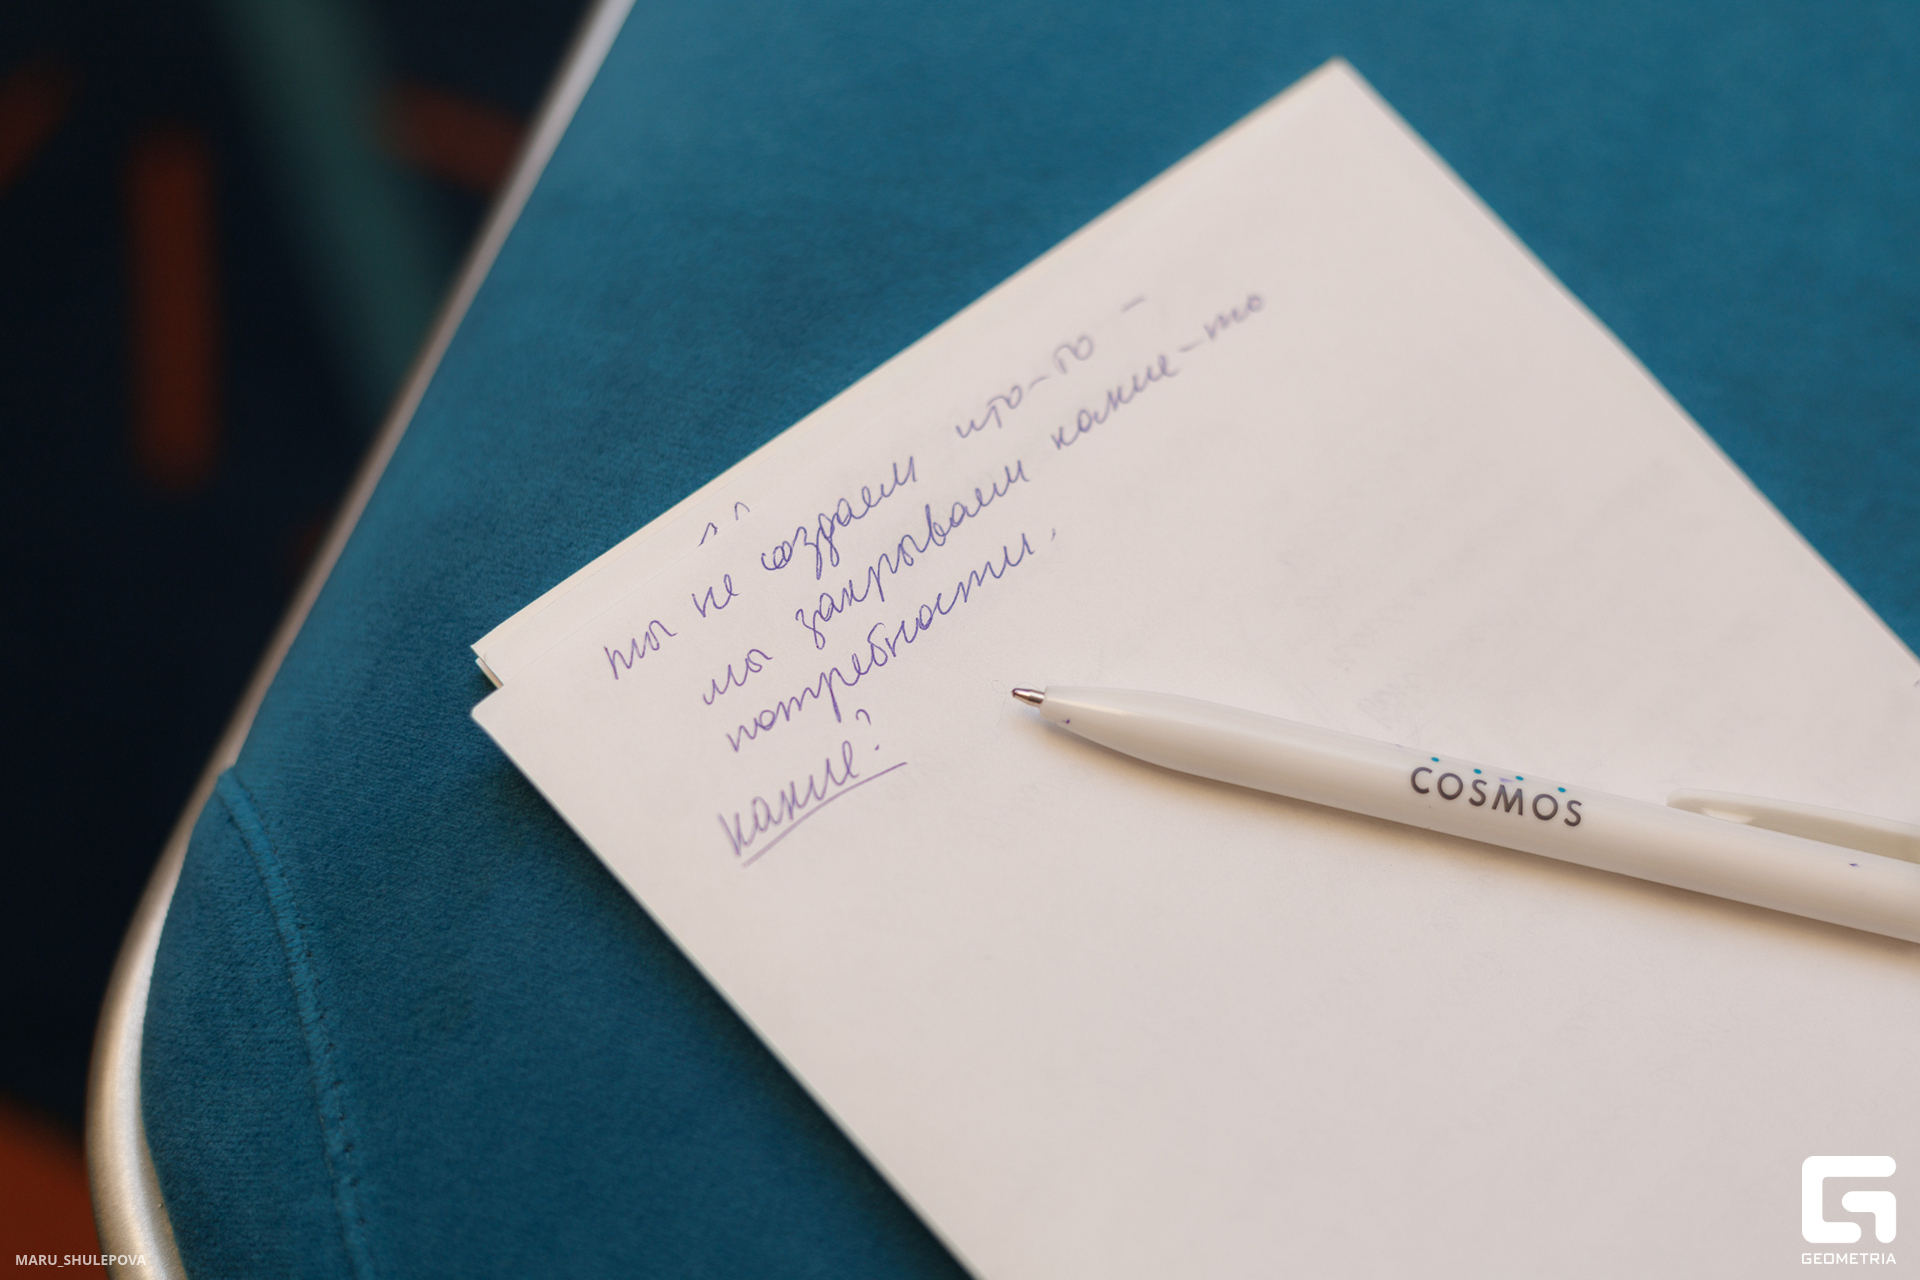 мы не создаем что-то -
мы закрываем какие-то
потребности.
какие?
COSMOS
MARU_SHULEPOVA
GEOMETRIA